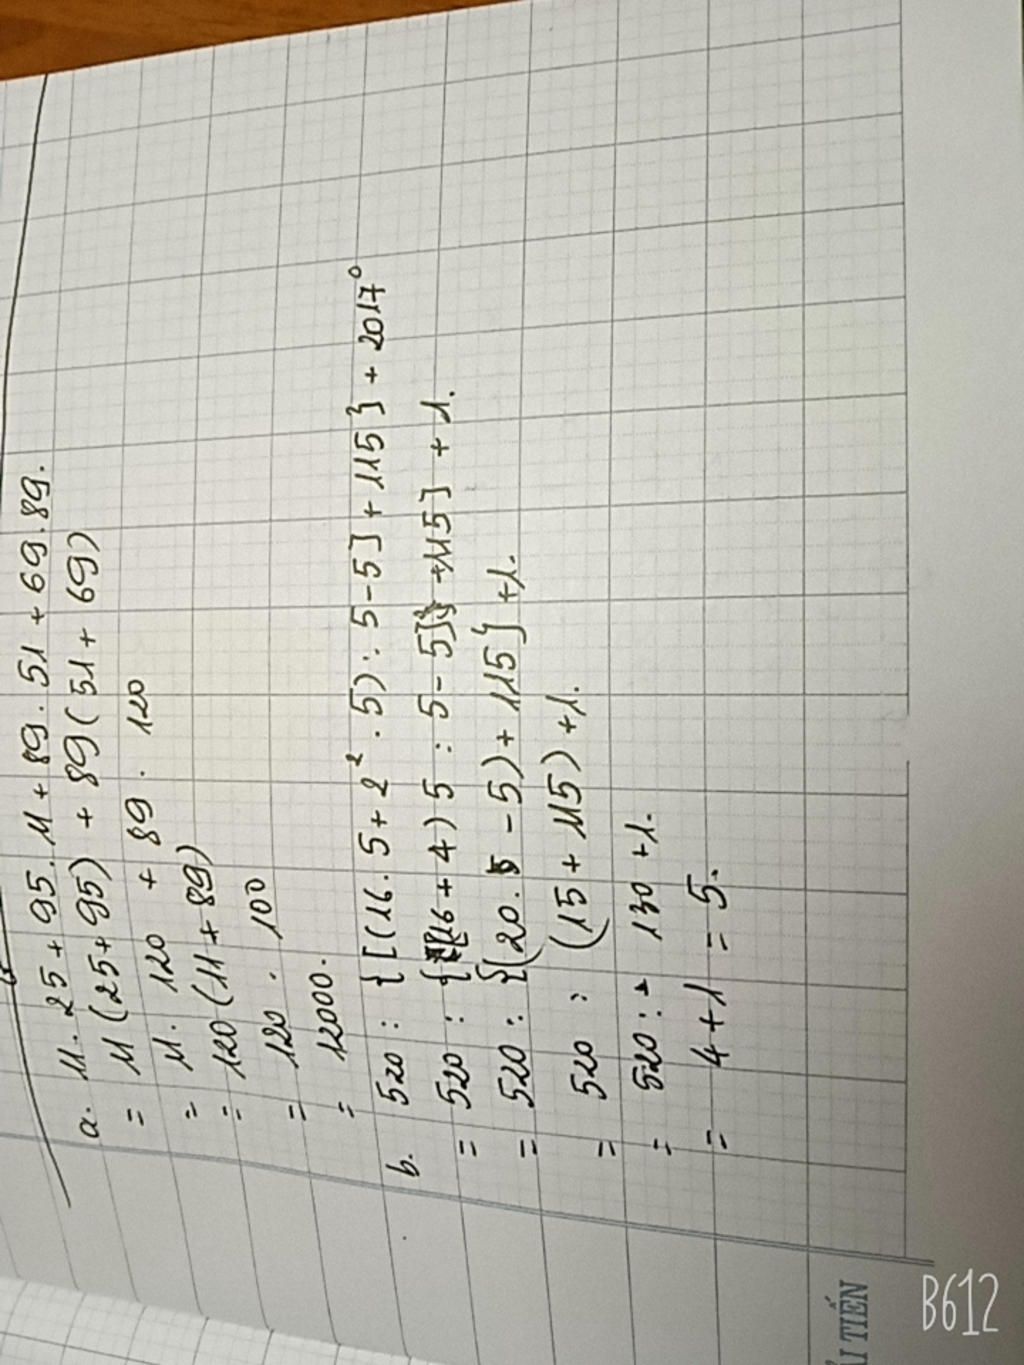 a. 11. 25 + 95. 11 + 89. 51 + 69. 89.
= 11 (25 + 95) + 89 ( 51 + 69)
= 11. 120 + 89. 120
= 120 (11 + 89)
= 120. 100
= 12000.
b. 520 : { [ (16. 5 + 2² . 5) : 5 - 5 ] + 115 } + 2017⁰
= 520 : { [(16 + 4) 5 : 5 - 5] + 115] + 1.
= 520 : {(20. - 5) + 115} + 1.
= 520 : (15 + 115) + 1.
= 520 : 130 + 1.
= 4 + 1 = 5.
I TIẾN
B612